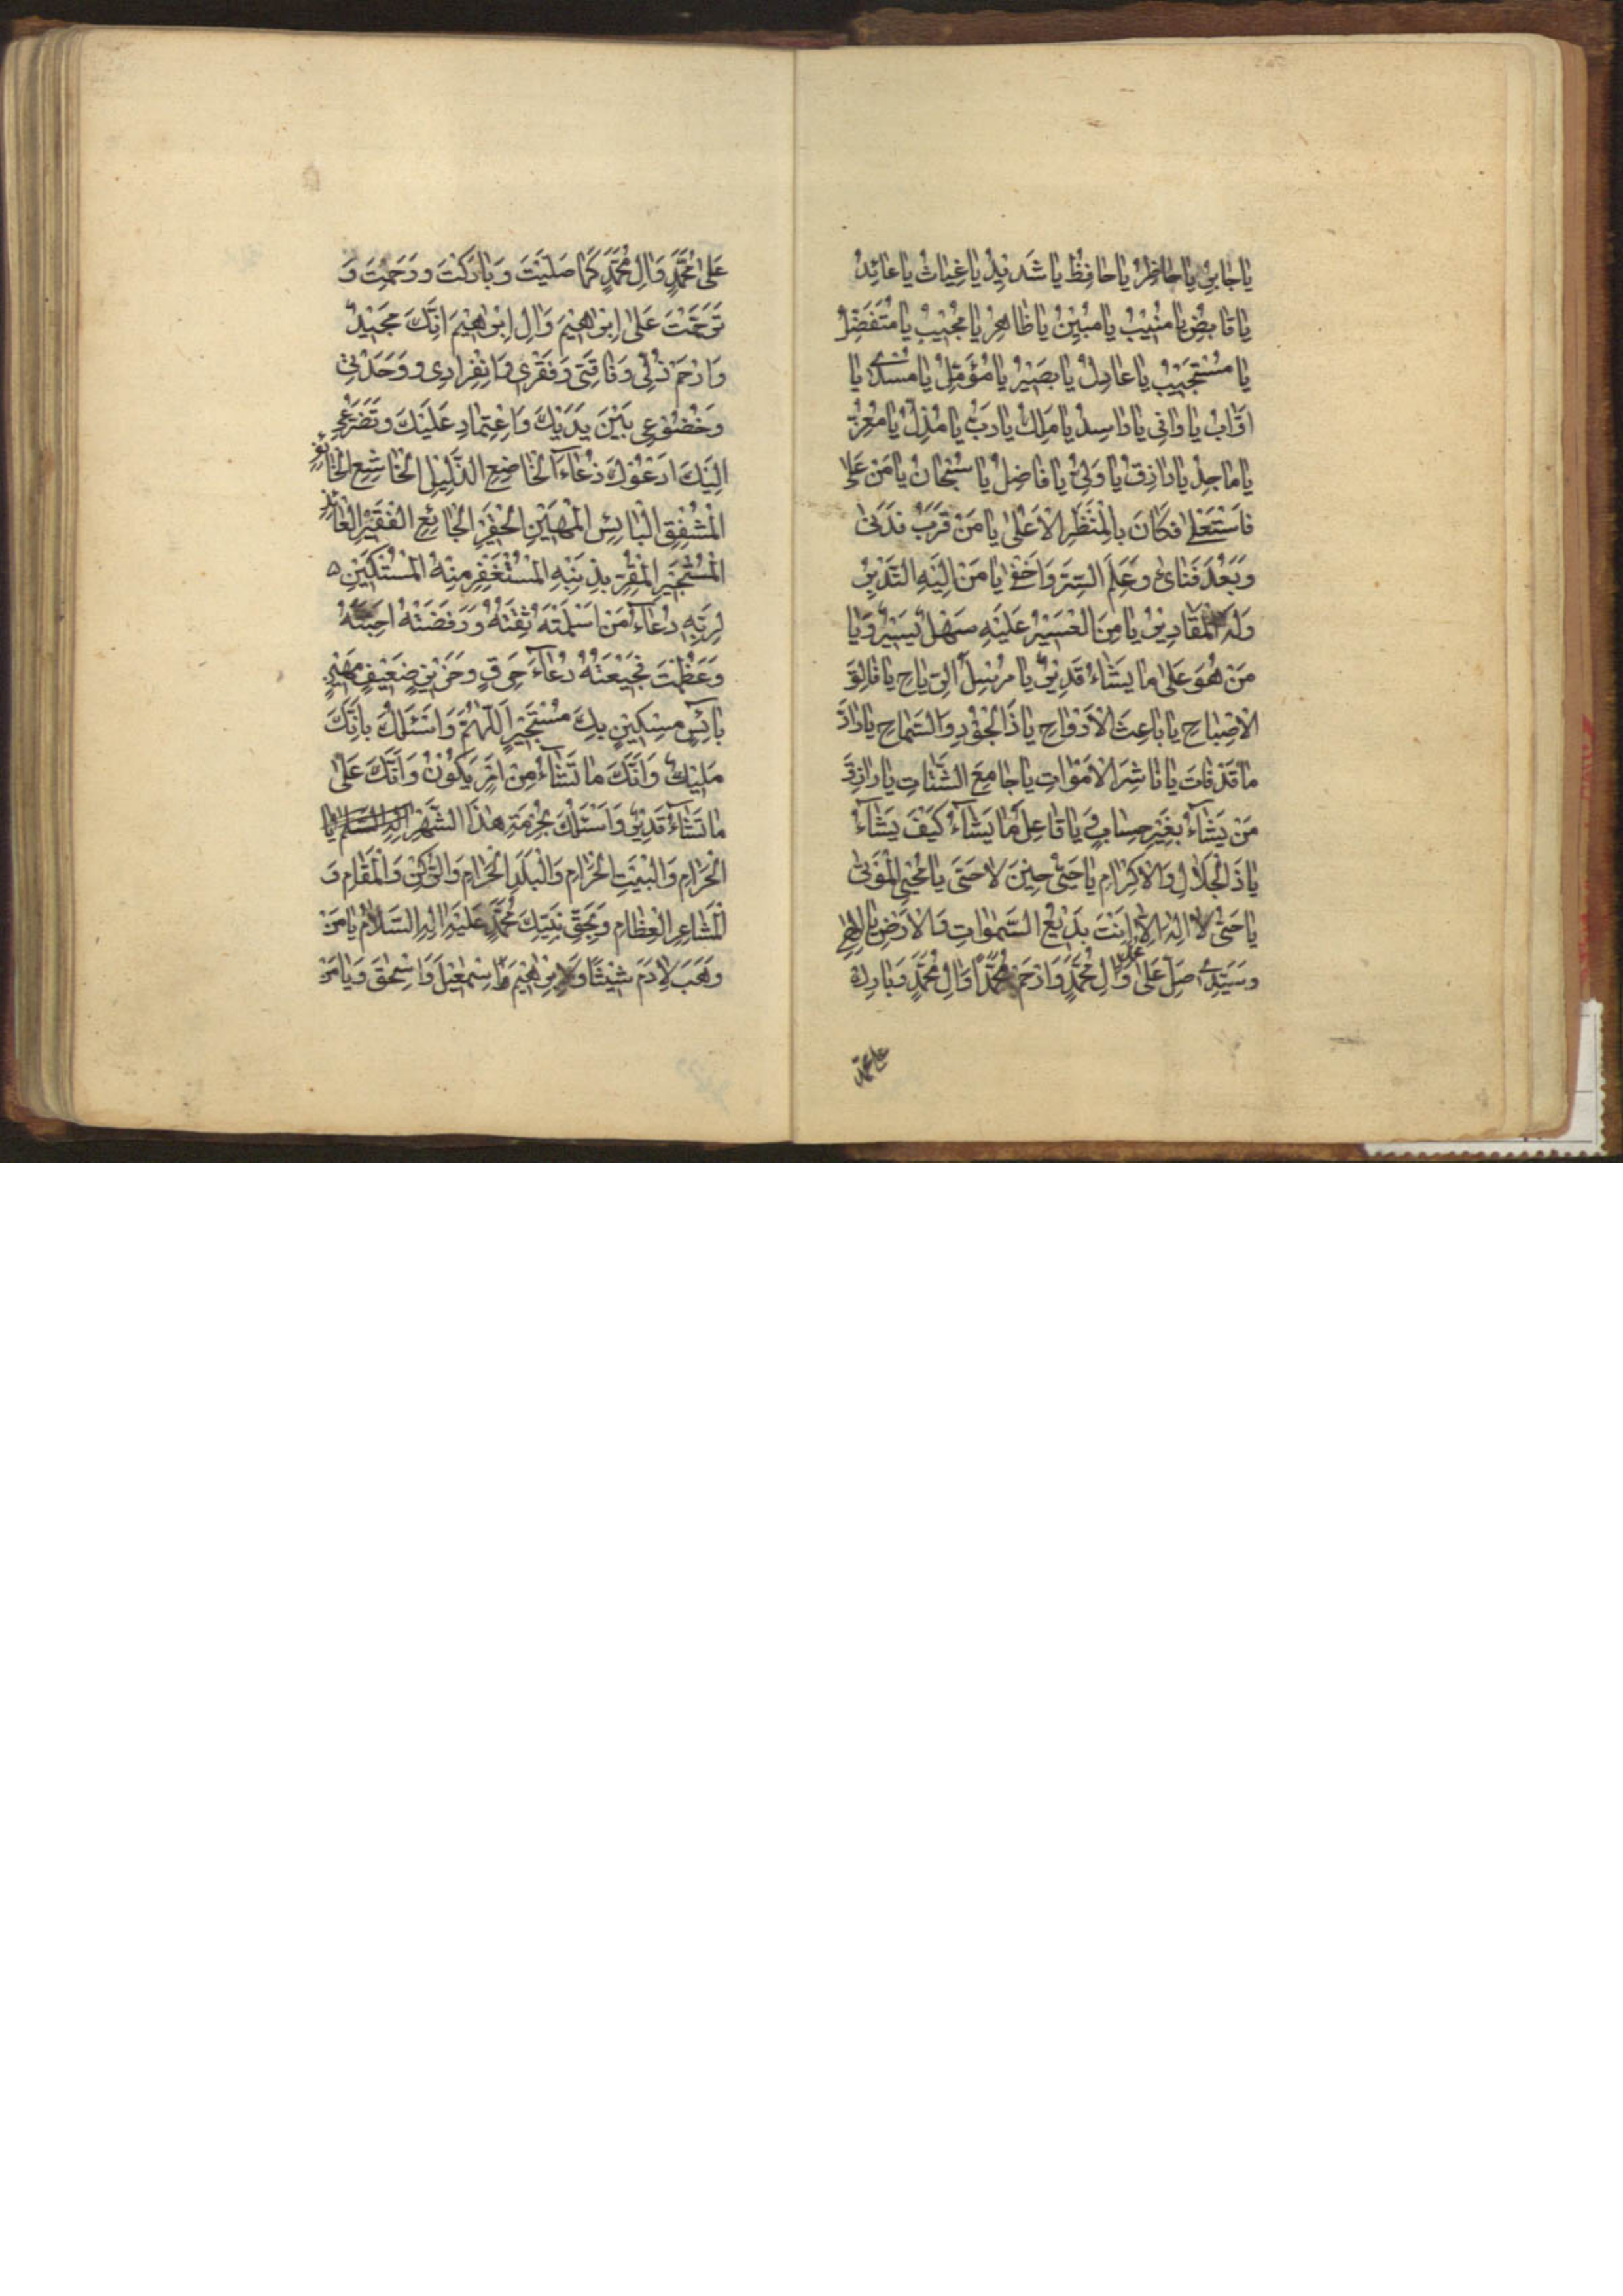 يا جابِرُ يا حاضِرُ يا حافِظُ يا شَديدُ يا غِياثُ يا عائِدُ
يا قابِضُ يا مُنيبُ يا مُبينُ يا ظاهِرُ يا مُجيبُ يا مُتَفَضِّلُ
يا مُسْتَجيبُ يا عادِلُ يا بَصيرُ يا مُؤَمَّلُ يا مُسْدي يا
اَوّابُ يا وافى يا راشِدُ يا مَلِكُ يا رَبُّ يا مُذِلُّ يا مُعِزُّ
يا ماجِدُ يا رازِقُ يا وَلِىُّ يا فاضِلُ يا سُبْحانُ يا مَنْ عَلا
فاسْتَعْلى فَكانَ بِالْمَنْظَرِ الْاَعْلى يا مَنْ قَرَبَ فَدَنى
وَبَعُدَ فَنائ وَعَلِمَ السِّرَّ وَاَخْفى يا مَنْ اِلَيْهِ التَّدْبيرُ
وَلَهُ الْمَقاديرُ يا مَنِ الْعَسيرُ عَلَيْهِ سَهْلٌ يَسيرٌ وَيا
مَنْ هُوَ عَلى ما يَشاءُ قَديرٌ يا مُرْسِلَ الرِّياحِ يا فالِقَ
الْاِصْباحِ يا باعِثَ الْاَرْواحِ يا ذَا الْجُودِ وَالسَّماحِ يا رادَّ
ما قَدْ فاتَ يا ناشِرَ الْاَمْواتِ يا جامِعَ الشَّتاتِ يا رازِقَ
مَنْ يَشآءُ بِغَيْرِ حِسابٍ وَ يا فاعِلَ ما يَشآءُ كَيْفَ يَشآءُ
يا ذَا الْجَلالِ وَالْاِكْرامِ يا حَىُّ حينَ لا حَىَّ يا مُحْيِىَ الْمَوْتى
يا حَىُّ لا اِلهَ اِلّا اَنْتَ بَديعُ السَّمواتِ وَالْاَرْضِ يا اِلهى
وَسَيِّدى صَلِّ عَلى مُحَمَّدٍ وَالِ مُحَمَّدٍ وَارْحَمْ مُحَمَّدًا وَالَ مُحَمَّدٍ وَبارِكْ
على محمد
عَلى مُحَمَّدٍ وَالِ مُحَمَّدٍ كَما صَلَّيْتَ وَبارَكْتَ وَرَحِمْتَ وَ
تَرَحَّمْتَ عَلى اِبْرهيمَ وَالِ اِبْرهيمَ اِنَّكَ مَجيدٌ
وَارْحَمْ ذُلّى وَفاقَتى وَفَقْرى وَانْفِرادى وَوَحْدَتى
وَخُضُوعى بَيْنَ يَدَيْكَ وَاعْتِمادى عَلَيْكَ وَتَضَرُّعى
اِلَيْكَ اَدْعُوكَ دُعاءَ الْخاضِعِ الذَّليلِ الْخاشِعِ الْخائِفِ
الْمُشْفِقِ الْبائِسِ الْمَهينِ الْحَقيرِ الْجائِعِ الْفَقيرِ الْعائِذِ
الْمُسْتَجيرِ الْمُقِرِّ بِذَنْبِهِ الْمُسْتَغْفِرِ مِنْهُ الْمُسْتَكينِ
لِرَبِّهِ دُعاءَ مَنْ اَسْلَمَتْهُ ثِقَتُهُ وَرَفَضَتْهُ اَحِبَّتُهُ
وَعَظُمَتْ فَجيعَتُهُ دُعآءَ حَرِقٍ وَحَزينٍ ضَعيفٍ مَهينٍ
بائِسٍ مِسْكينٍ بِكَ مُسْتَجيرٍ اَللّهُمَّ وَاَسْئَلُكَ بِاَنَّكَ
مَليكٌ وَاَنَّكَ ما تَشآءُ مِنْ اَمْرٍ يَكُونُ وَاَنَّكَ عَلى
ما تَشآءُ قَديرٌ وَاَسْئَلُكَ بِحُرْمَةِ هذَا الشَّهْرِ
الْحَرامِ وَالْبَيْتِ الْحَرامِ وَالْبَلَدِ الْحَرامِ وَالرُّكْنِ وَالْمَقامِ وَ
الْمَشاعِرِ الْعِظامِ وَبِحَقِّ نَبِيِّكَ مُحَمَّدٍ عَلَيْهِ وَالِهِ السَّلامُ يا مَنْ
وَهَبَ لِادَمَ شَيْثًا وَلِاِبْرهيمَ اِسْمعيلَ وَاِسْحقَ وَيا مَنْ